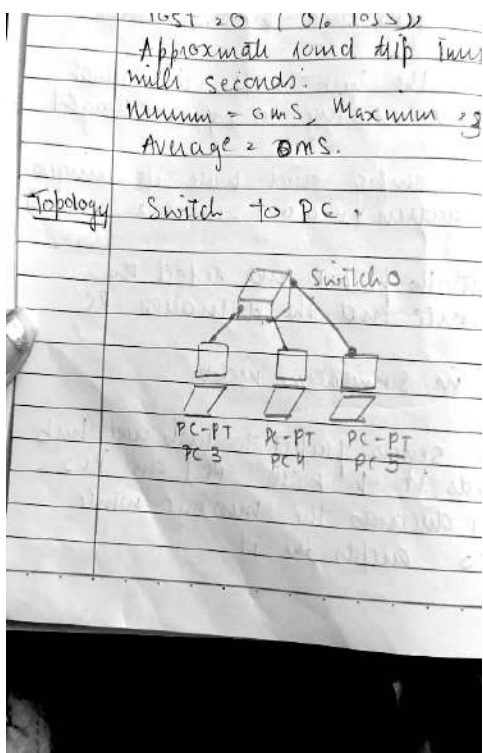 lost = 0 (0% loss),
Approximate round trip times
milli seconds:
Minimum = 0ms, Maximum = 3
Average = 0ms.
Topology Switch to PC.
Switch0
PC-PT PC-PT PC-PT
PC 3 PC4 PC 5